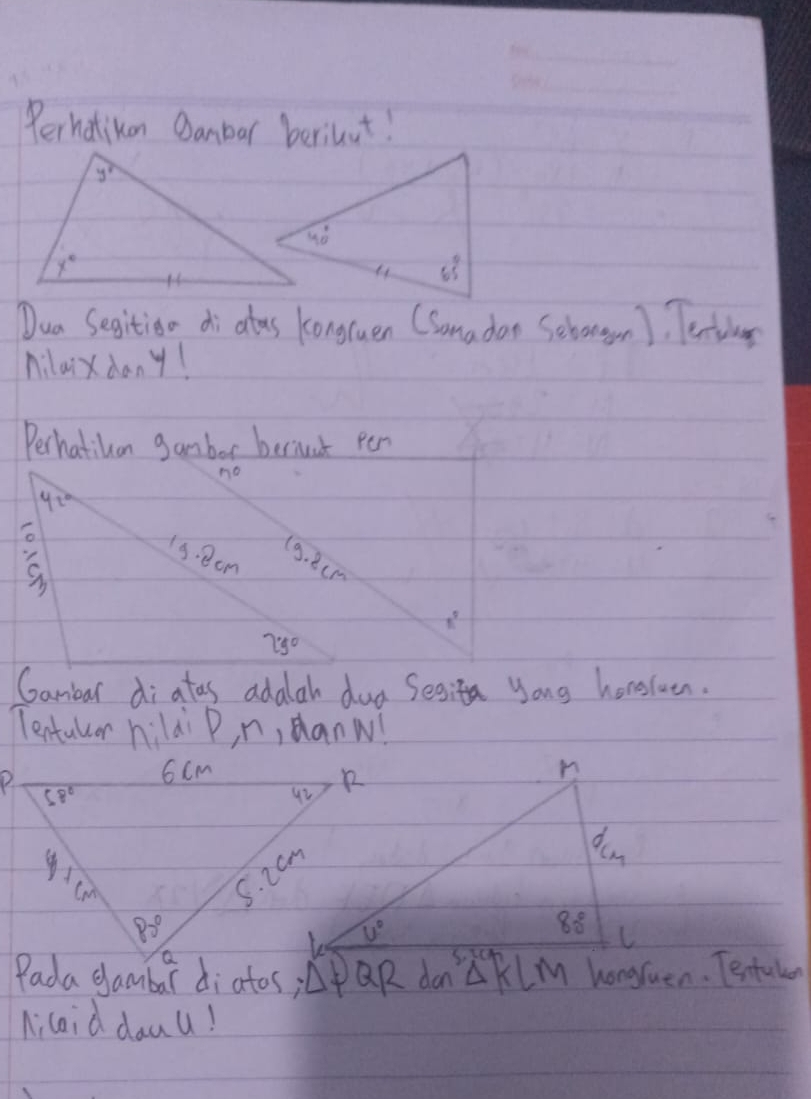 Perhatikan Gambar berikut!
y°
x°
40°
65°
Dua Segitiga di atas kongruen (Sama dan Sebangun). Tentukan
nilai x dan y!
Perhatikan gambar berikut Pcm
m°
42°
10.1 cm
19.8 cm
19.8 cm
n°
Gambar di atas adalah dua Segita yang kongruen.
Tentukan nilai P, m, dan N!
P
6 cm
R
M
58°
42
d cm
5.2 cm
80°
Q
K
u°
80°
L
Pada gambar di atas, ΔPQR dan ΔKLM kongruen. Tentukan
nilai d dan u!